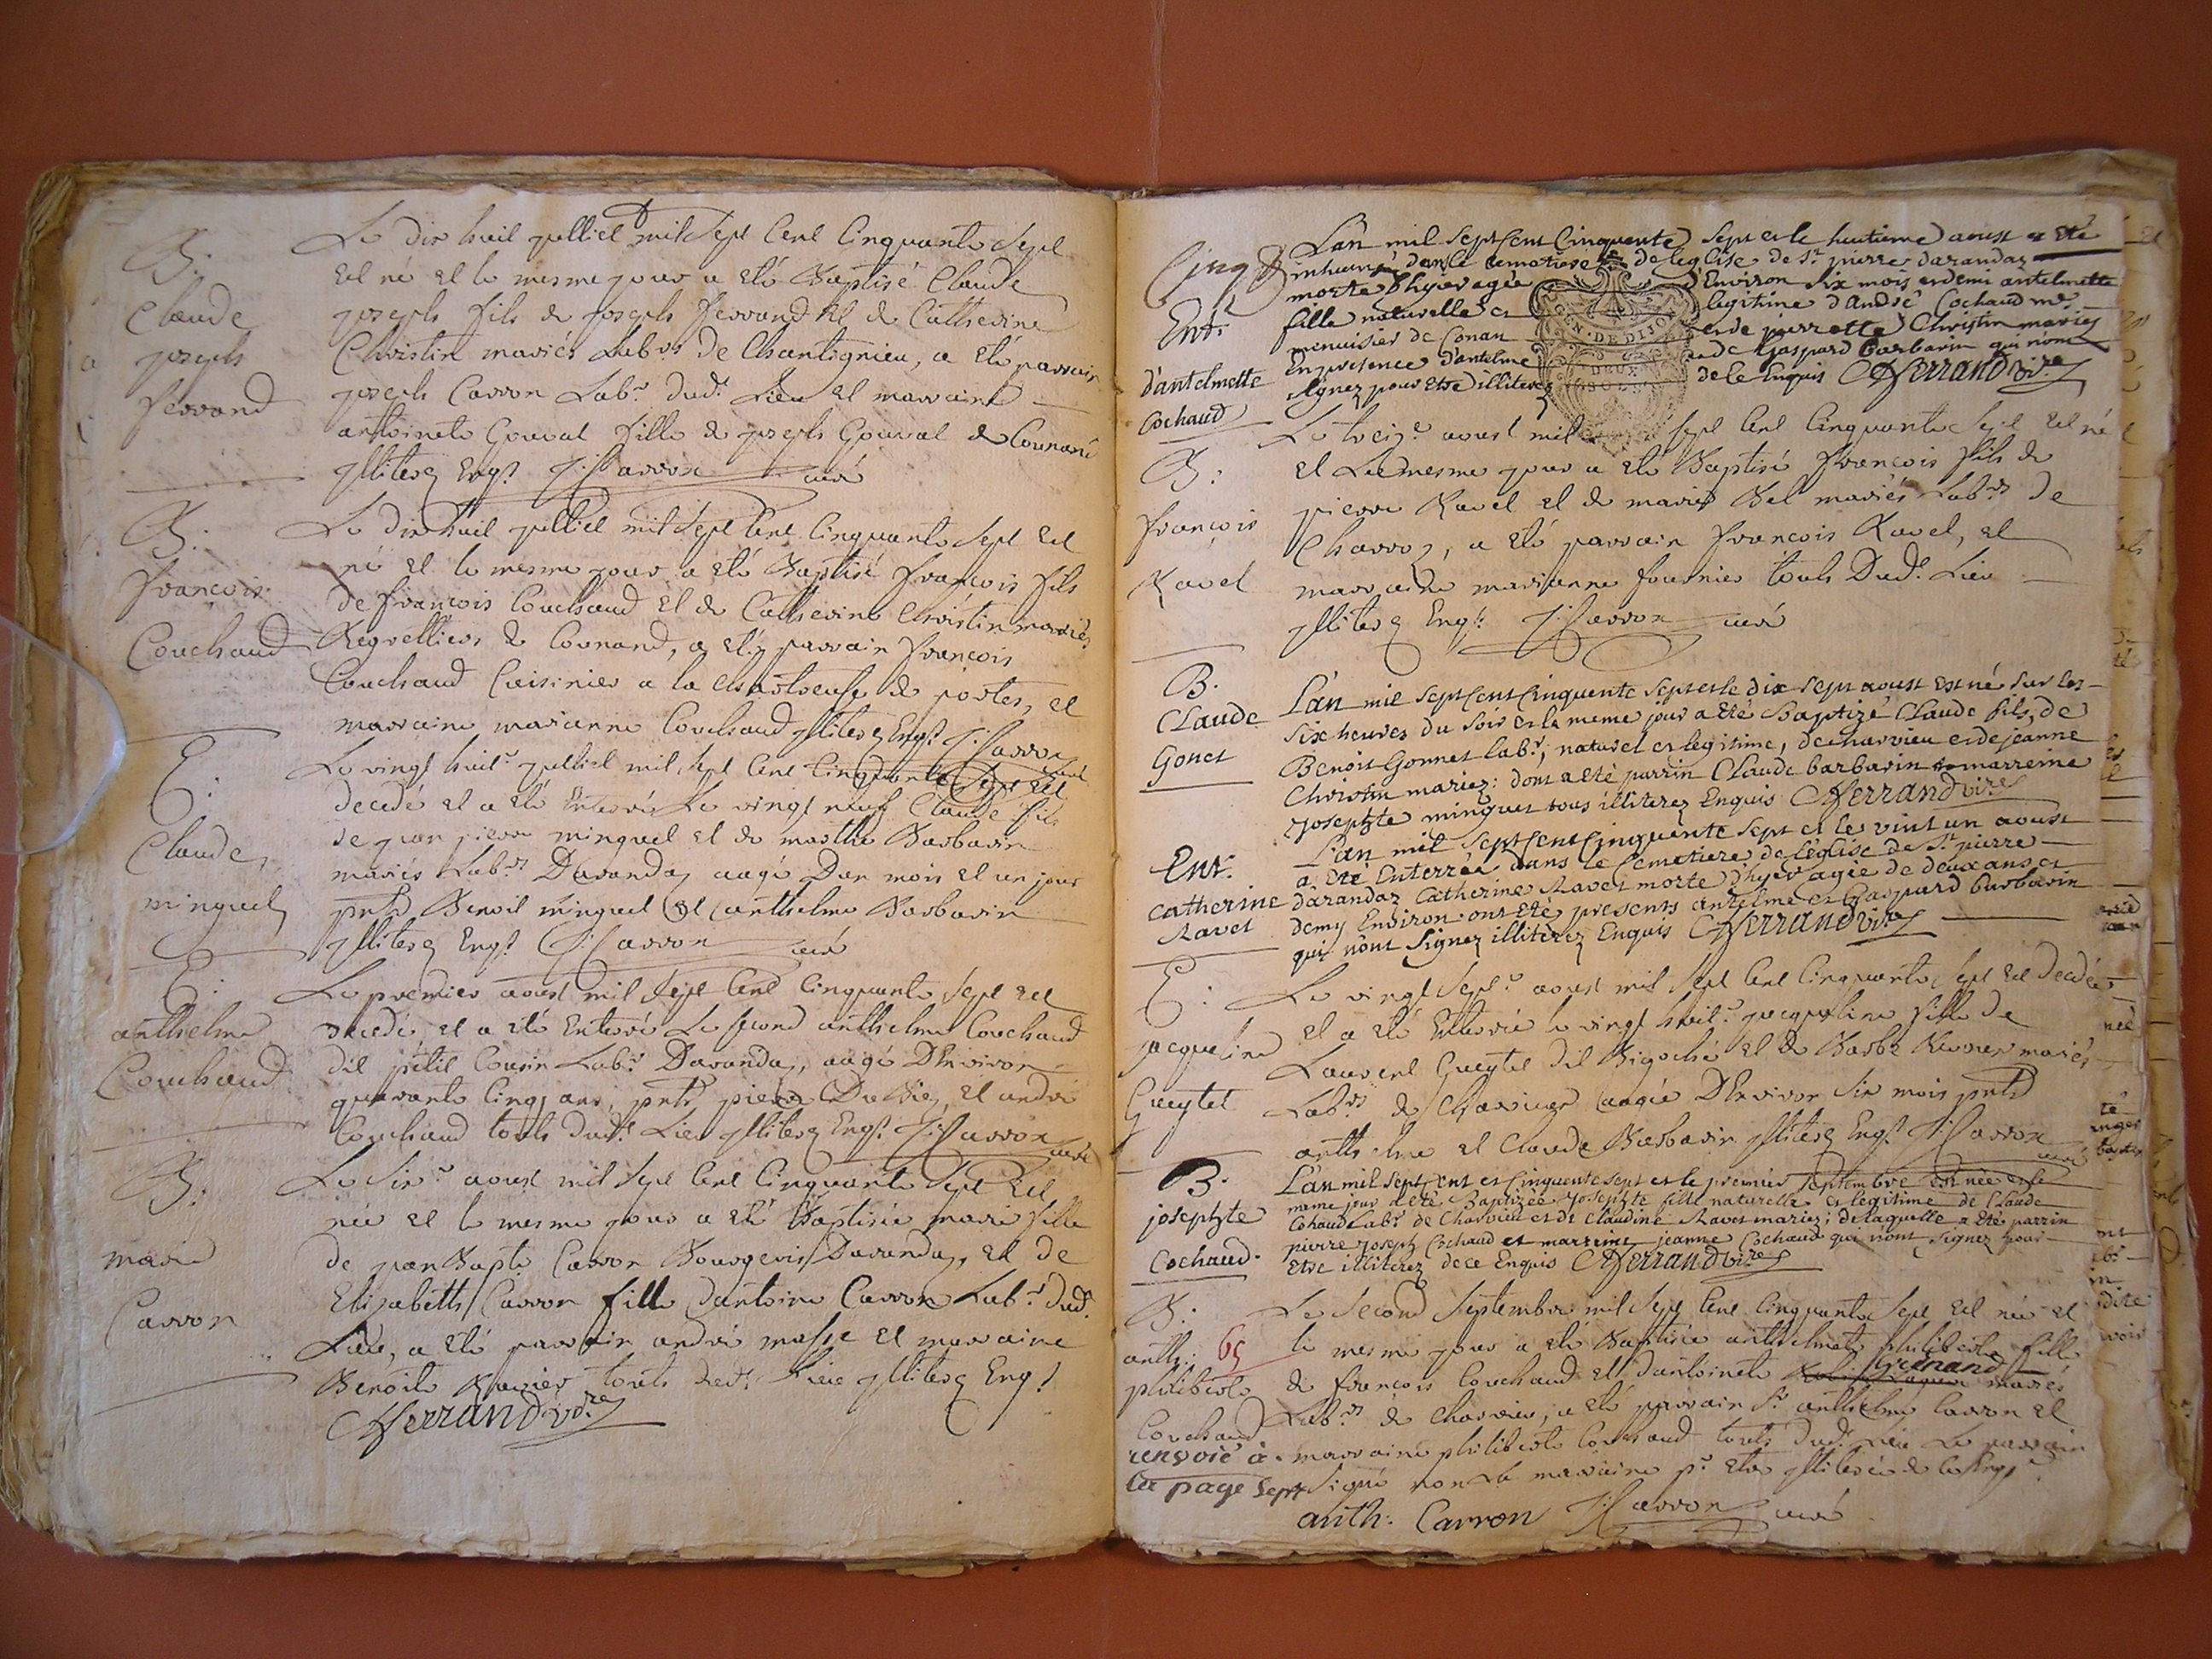 B:
Claude
joseph
ferrand
Le dix huit juilliet mil Sept Cent Cinquante Sept
Est né et le mesme jour a eté Baptisé Claude
joseph fils de joseph ferrand et de Catherine
Christin mariés Lab.rs de Chantignieu, a eté parrain
joseph Carron Lab.r dud.t Lieu et marraine
anthoinete Gouval fille de joseph Gouval de Counand
jlliteres Enq.s J: Carron curé
B:
françois
Couchaud
Le dixhuit juilliet mil Sept Cent Cinquante Sept Est
né et le mesme jour a eté Baptisé françois fils
de françois Couchaud et de Catherine Christin mariés
de Counand, a eté parrain françois
Couchaud Cuisinier a la Chartreuse de portes, et
marraine marianne Couchaud jlliteres Enq.s J: Carron
curé
E:
Claude
minguet
Le vingt huit.e juilliet mil Sept Cent Cinquante Sept Est
decedé et a eté Enterré Le vingt neuf Claude fils
de jean pierre minguet et de marthe Barbarin
mariés Lab.rs Darandas aagé Dun mois et un jour
pnts Benoit minguet et anthelme Barbarin
jlliteres Enq.s J: Carron curé
E:
anthelme
Couchaud
Le premier aoust mil Sept Cent Cinquante Sept Est
decedé et a eté Enterré Le second anthelme Couchaud
dit petit Cousin Lab.r Darandas, aagé D'Environ
quarante Cinq ans, pnts pierre et andré
Couchaud touts dud.t Lieu jlliteres Enq.s J: Carron
curé
B:
marie
Carron
Le Six.e aoust mil Sept Cent Cinquante Sept Est
née et le mesme jour a eté Baptisée marie fille
de jean Bapt.e Carron Bourgeois Darandas, et de
Elizabeth Carron fille dantoine Carron Lab.r dud.t
Lieu, a eté parrain andré masse et marraine
Benoite touts dud.t Lieu jlliteres Enq.s
Ferrand vic.re
Cinq
Ent:
d'antelmette
Cochaud
L'an mil Sept Cent Cinquante Sept et le huitieme aoust a eté
inhumée dans le cemetiere de leglise de S.t pierre darandaz
morte d'hyer agée d'Environ Six mois et demi antelmette
fille naturelle et legitime d'André Cochaud m.e
menuisier de Conan et de pierrette Christin mariez
En presence d'antelme et de Gaspard Barbarin qui n'ont
signez pour etre illiterez de ce Enquis Ferrand vic.re
GEN. DE DIJON
DEUX
SOLS
B:
françois
Ravet
Le treiz.e aoust mil Sept Cent Cinquante Sept Est né
et Le mesme jour a eté Baptisé françois fils de
pierre Ravet et de marie Bel mariés Lab.rs de
Charvoz, a eté parrain françois Ravet, et
marraine marianne fournier touts Dud.t Lieu
jlliteres Enq.s J: Carron curé
B.
Claude
Gonet
L'an mil Sept Cent Cinquente Sept et le dix Sept aoust est né sur les
Six heures du Soir et le meme jour a eté Baptizé Claude fils, de
Benoit Gonnet lab.r, naturel et legitime, de charvieu et de jeanne
Christin mariez: dont a eté parrin Claude barbarin et marreine
josephte minguet tous illiterez Enquis Ferrand vic.re
Ent:
Catherine
Ravet
L'an mil Sept Cent Cinquente Sept et le vint un aoust
a ete Enterrée dans le Cemetiere de l'eglise de S.t pierre
darandaz Catherine Ravet morte d'hyer agée de deux ans et
demy Environ. ont eté presents antelme et Gaspard Barbarin
qui n'ont Signez illiterez Enquis Ferrand vic.re
E:
jacqueline
Gueytet
Le vingt Sept.e aoust mil Sept Cent Cinquante Sept est decedée
et a eté Enterrée le vingt huit.e jacqueline fille de
Laurent Gueytet dit et de Barbe mariés
Lab.rs de aagée D'Environ Six mois pnts
anthelme et Claude Barbarin jlliteres Enq.s J: Carron
curé
B.
josephte
Cochaud.
L'an mil Sept Cent et Cinquente Sept et le premier Septembre est née et le
meme jour a eté Baptizée josephte fille naturelle et legitime de Claude
Cohaud Lab.r de Charvieu et de Claudine Ravet mariez; de laquelle a eté parrin
pierre joseph Cochaud et marreine jeanne Cochaud qui n'ont Signez pour
etre illiterez de ce Enquis Ferrand vic.re
B:
anth:
philiberte
Couchaud
65
renvoié à
la page Sept
Le Second Septembre mil Sept Cent Cinquante Sept est née et
le mesme jour a eté Baptisée anthelmete philiberte fille
de françois Couchaud et dantoinete mariés
Lab.rs de Charvieu, a eté parrain S.r anthelme Carron et
marraine philiberte Couchaud touts dud.t Lieu Le parrain
Signé non La marraine p.r etre jlliterée de ce Enq.s
anth: Carron J: Carron curé